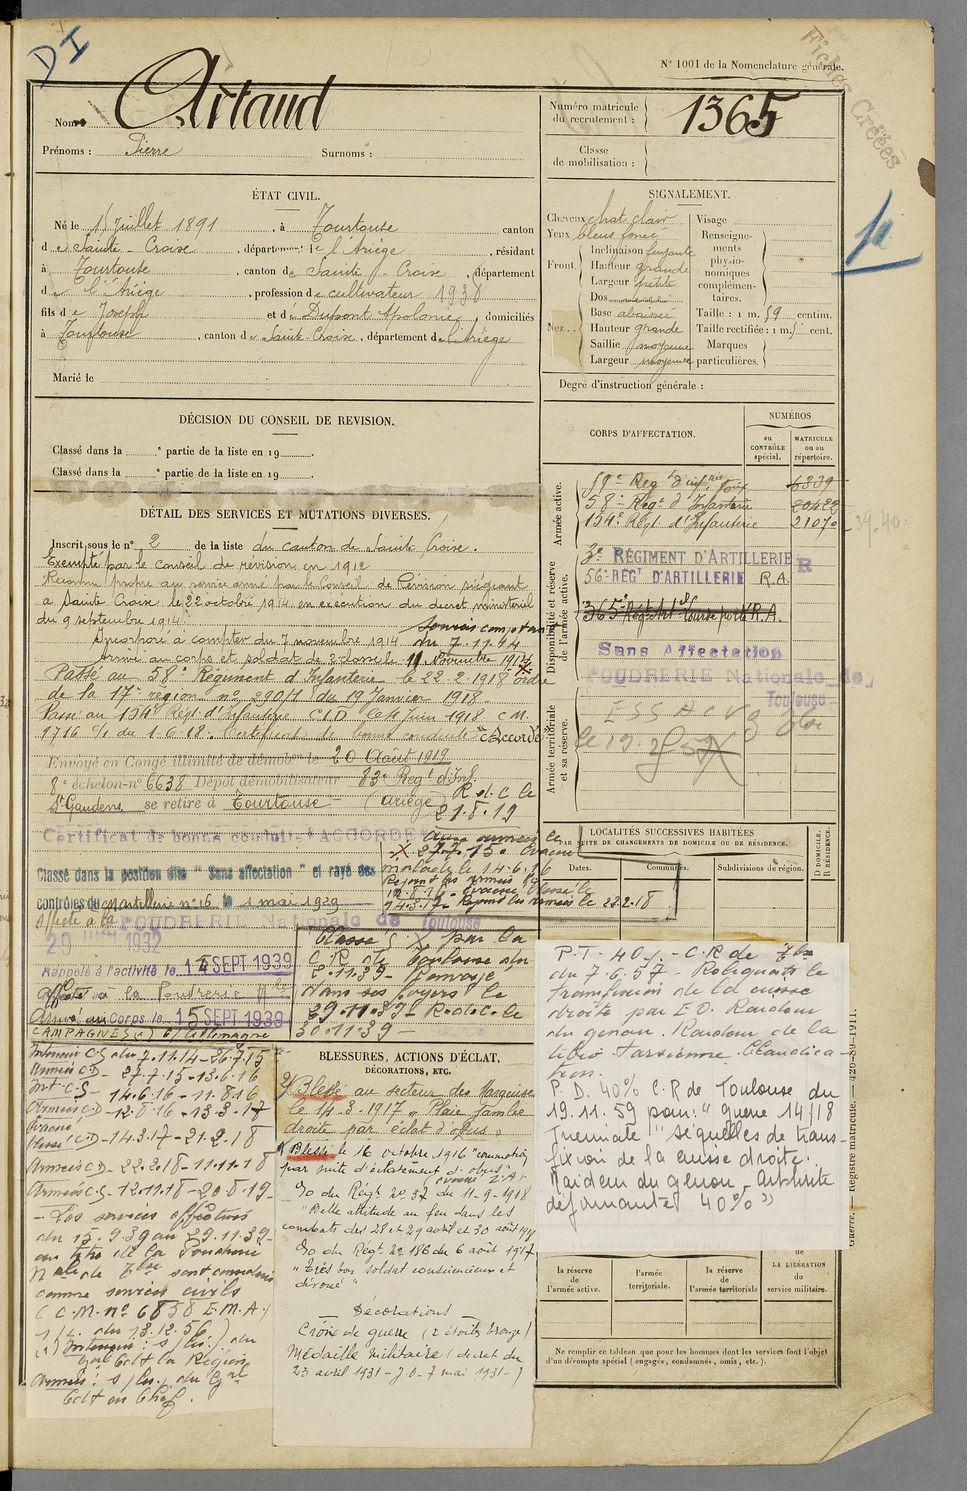 DI
N° 1001 de la Nomenclature générale.
Fiches Créées
Nom : Artaud
Prénoms : Pierre Surnoms :
Numéro matricule du recrutement : 1365
Classe de mobilisation :
ÉTAT CIVIL.
Né le 15 Juillet 1891, à Tourtouse canton
de Sainte-Croise, département de l'Ariége, résidant
à Tourtouse, canton de Sainte-Croise, département
de l'Ariége, profession de cultivateur 1938
fils de Joseph et de Dupont Apolonie, domiciliés
à Tourtouse, canton de Sainte-Croise, département de l'Ariège
Marié le
SIGNALEMENT.
Cheveux chat. clair
Yeux bleus foncé
Front.
Inclinaison fuyante
Hauteur grande
Largeur petite
Nez...
Dos
Base abaissée
Hauteur grande
Saillie moyenne
Largeur moyenne
Visage
Renseignements physionomiques complémentaires.
Taille : 1 m. 59 centim.
Taille rectifiée : 1 m. cent.
Marques particulières.
Degré d'instruction générale :
DÉCISION DU CONSEIL DE REVISION.
Classé dans la ° partie de la liste en 19 .
Classé dans la ° partie de la liste en 19 .
CORPS D'AFFECTATION.
NUMÉROS
au CONTRÔLE spécial.
MATRICULE ou au répertoire.
Armée active.
59e Reg t d'infrie Foix 6339
58e Regt d'Infanterie 20422
154e Régt d'Infanterie 21070
39-40
Disponibilité et réserve de l'armée active.
3e RÉGIMENT D'ARTILLERIE R
56e REGT D'ARTILLERIE R.A.
365e Regt Art lourde porté R.A.
Sans Affectation
POUDRERIE Nationale de Toulouse
Armée territoriale et sa réserve.
DÉTAIL DES SERVICES ET MUTATIONS DIVERSES.
Inscrit sous le n° 2 de la liste du canton de Sainte Croise.
Exempté par le Conseil de revision en 1912
Reconnu propre au service armé par le Conseil de Révision siégeant
a Sainte Croise le 22 octobre 1914 en exécution du decret ministeriel
du 9 septembre 1914
Incorporé à compter du 7 novembre 1914 Soumis comptant du 7.11.14
Arrivé au corps et soldat de 2e classe le 11 Novembre 1914
Passé au 58e Régiment d'Infanterie le 22.2.1918 ordre
de la 17e région no 290/1 du 19 Janvier 1918.
Passé au 154e Régt d'Infanterie C.I.D. le 4 Juin 1918 C.M.
1716 c/1 du 1.6.18. Certificat de bonne conduite "Accordé"
Envoyé en Congé illimité de démobon le 20 Août 1919
8e échelon-n° 6638 Dépôt démobilisateur 83e Regt d'Inf.
St Gaudens se retire à Tourtouse (Ariège) R.d.C. le 21.8.19
Certificat de bonne conduite "ACCORDE"
Classé dans la position dite "Sans affectation" et rayé des
contrôles du artillerie n° 16 le 1 mai 1929
Affecté à la POUDRERIE Nationale de Toulouse
29 1932
Rappelé à l'activité le 14 SEPT 1939
Affecté à la Poudrerie Nle
Arrivé au Corps le 15 SEPT 1939
Aux armées le
27.7.15. Evacué
malade le 14.6.16
Rejoint les armées le
12.8.16. Evacué blessé le
14.3.17. Rejoint les armées le 22.2.18
Classé par la
C.R. de Toulouse du
8.11.39 Renvoyé
dans ses foyers le
29.11.39 R.d.C. le
30.11.39
LOCALITÉS SUCCESSIVES HABITÉES
PAR SUITE DE CHANGEMENTS DE DOMICILE OU DE RÉSIDENCE.
Dates.
Communes.
Subdivisions de région.
D DOMICILE. R RÉSIDENCE.
CAMPAGNE(S) C/ Allemagne
Intérieur C.S. du 7.11.14-26.7.15
Armées C.D- 27.7.15-13.6.16
Int C.S- 14.6.16-11.8.16
Armées C.D-12.8.16-13.3.17
Evacué
blessé C.D-14.3.17-21.2.18
Armées C.D-22.2.18-11.11.18
Armées C.S-12.11.18-20.8.19-
- Les services effectués
du 15.9.39 au 29.11.39-
au titre de la Poudrerie
Nale de Tlse sont considérés
comme services civils
(C.M. no 6838 E.M.A./
1/L. du 13.12.56.)
BLESSURES, ACTIONS D'ÉCLAT,
DÉCORATIONS, ETC.
2/ Blessé au secteur des Marquises
le 14-3-1917 Plaie jambe
droite par éclat d'obus.
1/ Blessé le 16 octobre 1916 "commotion
par suite d'éclatement d'obus"
évacué Z.A.
Go du Régt no 37 du 11-9-1918
"Belle attitude au feu dans les
combats des 28 et 29 avril et 30 août 1918
Go du Régt no 186 du 6 août 1917
"Très bon soldat consciencieux et
dévoué"
Décorations
Croix de guerre (2 étoiles bronze)
Médaille militaire (decret du
23 avril 1931-J.O-7 mai 1931-)
P.T. 40%.-C.R de Tlse
du 7.6.57- Reliquats de
transfixion de la cuisse
droite par E.O. Raideur
du genou. Raideur de la
tibio-tarsienne. Claudica-
tion.
P.D. 40% C.R de Toulouse du
19.11.59 pour: "guerre 14/18
"séquelles de trans-
fixion de la cuisse droite.
Raideur du genou - Arthrite
déformante 40%"
la réserve de l'armée active.
l'armée territoriale.
la réserve de l'armée territoriale
LA LIBÉRATION du service militaire.
Ne remplir ce tableau que pour les hommes dont les services font l'objet
d'un décompte spécial (engagés, condamnés, omis, etc.).
Guerre. — Registre matricule. — 426-89-1911.